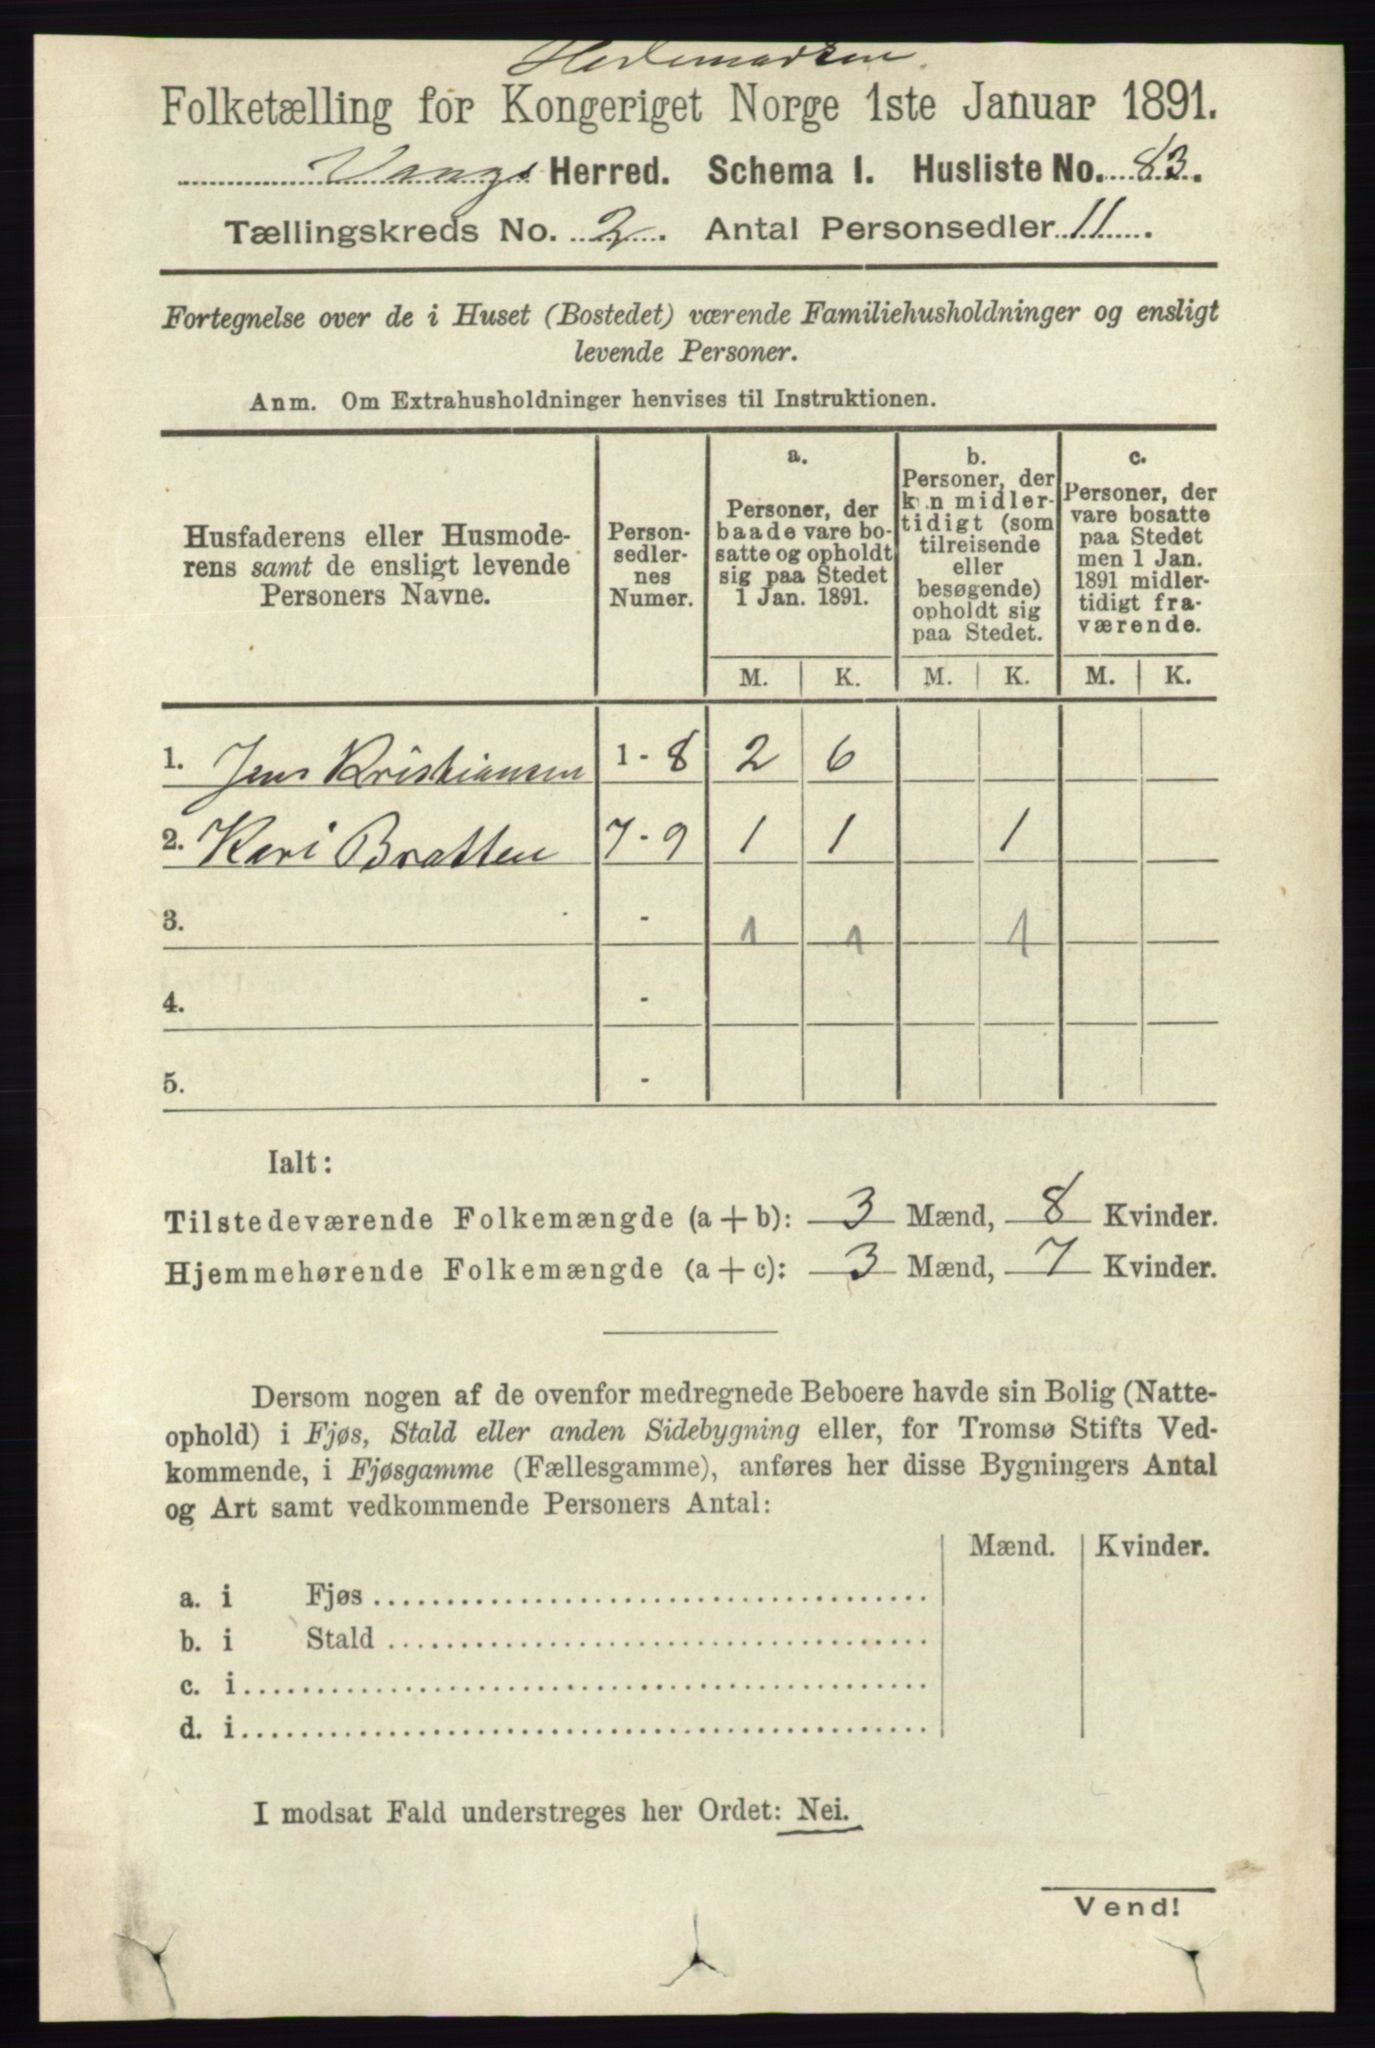 Hedemarken.
Folketælling for Kongeriget Norge 1ste Januar 1891.
Vangs Herred. Schema I. Husliste No. 83.
Tællingskreds No. 2. Antal Personsedler 11.
Fortegnelse over de i Huset (Bostedet) værende Familiehusholdninger og ensligt
levende Personer.
Anm. Om Extrahusholdninger henvises til Instruktionen.
Husfaderens eller Husmode-
rens samt de ensligt levende
Personers Navne.
Person-
sedler-
nes
Numer.
a.
Personer, der
baade vare bo-
satte og opholdt
sig paa Stedet
1 Jan. 1891.
b.
Personer, der
kun midler-
tidigt (som
tilreisende
eller
besøgende)
opholdt sig
paa Stedet.
c.
Personer, der
vare bosatte
paa Stedet
men 1 Jan.
1891 midler-
tidigt fra-
værende.
M. K. M. K. M. K.
1. Jens Kristiansen 1 - 8 2 6
2. Kari Bratten 7 - 9 1 1 1
3. - 1 1 1
4. -
5. -
Ialt:
Tilstedeværende Folkemængde (a + b): 3 Mænd, 8 Kvinder.
Hjemmehørende Folkemængde (a + c): 3 Mænd, 7 Kvinder.
Dersom nogen af de ovenfor medregnede Beboere havde sin Bolig (Natte-
ophold) i Fjøs, Stald eller anden Sidebygning eller, for Tromsø Stifts Ved-
kommende, i Fjøsgamme (Fællesgamme), anføres her disse Bygningers Antal
og Art samt vedkommende Personers Antal:
Mænd. Kvinder.
a. i Fjøs
b. i Stald
c. i
d. i
I modsat Fald understreges her Ordet: Nei.
Vend!